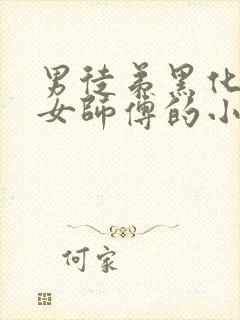 男徒弟黑化
女師傅的小
何家